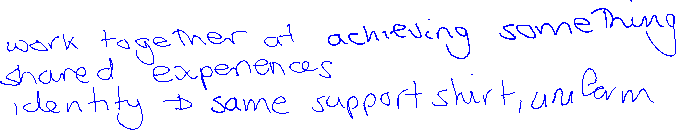 work together at achieving something
shared experiences
identity → same support shirt, uniform